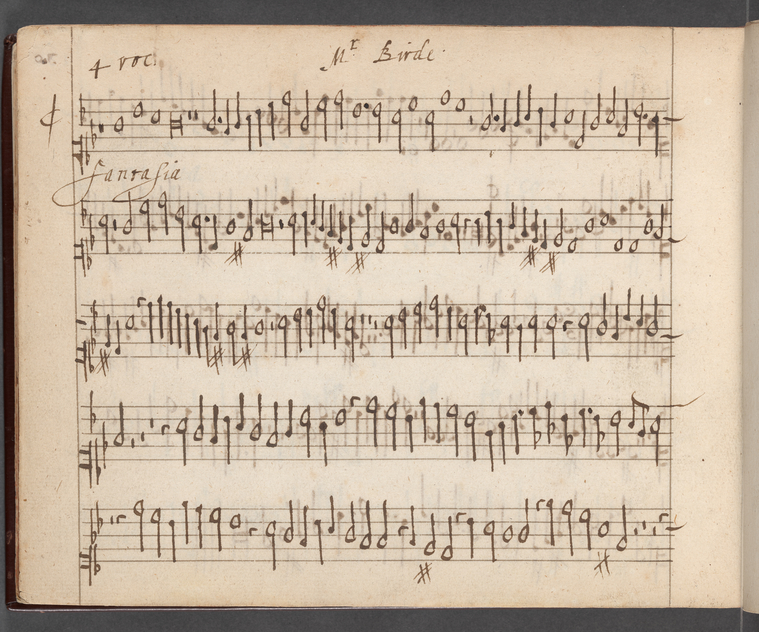 4 voc: Mr Birde.
fantasia